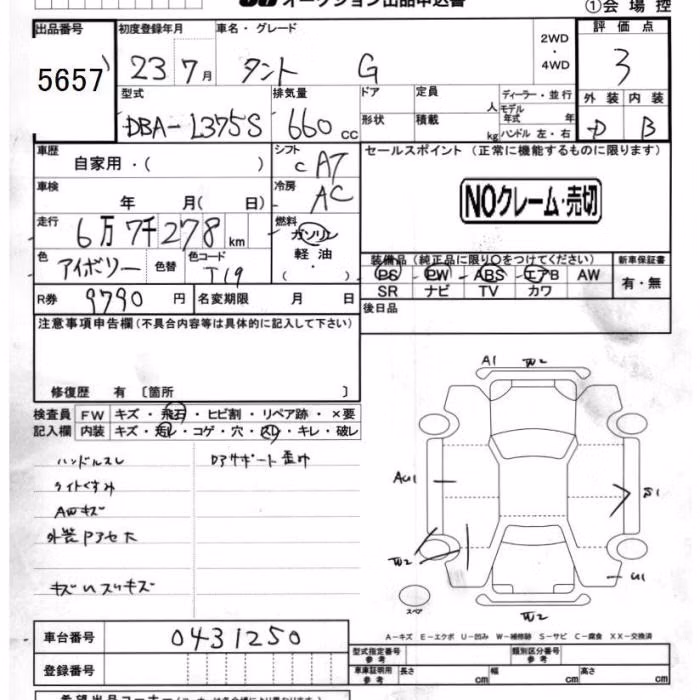 オークション出品申込書 ①会場控
出品番号 5657
初度登録年月 23 7月
車名・グレード タント G
2WD・4WD
評価点 3
型式 DBA-L375S
排気量 660 cc
ドア 定員 人
形状 積載 kg
ディーラー・並行
モデル年式 年
ハンドル 左・右
外装 D 内装 B
車歴 自家用・( )
シフト CAT
セールスポイント (正常に機能するものに限ります)
車検 年 月( 日)
冷房 AC
NOクレーム・売切
走行 6万7千278 km
燃料 ガソリン 軽油 ( ・ )
色 アイボリー 色替 色コード T19
装備品 (純正品に限り○をつけてください) 新車保証書
PS PW ABS エアB AW 有・無
SR ナビ TV カワ
R券 9790 円 名変期限 月 日
後日品
注意事項申告欄 (不具合内容等は具体的に記入して下さい)
修復歴 有 〔箇所 〕
検査員 FW キズ・飛石・ヒビ割・リペア跡・×要
記入欄 内装 キズ・汚レ・コゲ・穴・スレ・キレ・破レ
ハンドルスレ
ライトくすみ
AWキズ
キズ凹スリキズ
A1 W2
AU1 S1
W2 U1
スペア W2
A-キズ E-エクボ U-凹み W-補修跡 S-サビ C-腐食 XX-交換済
車台番号 0431250
型式指定番号 参考 類別区分番号 参考
登録番号
車庫証明用 参考 長さ cm 幅 cm 高さ cm